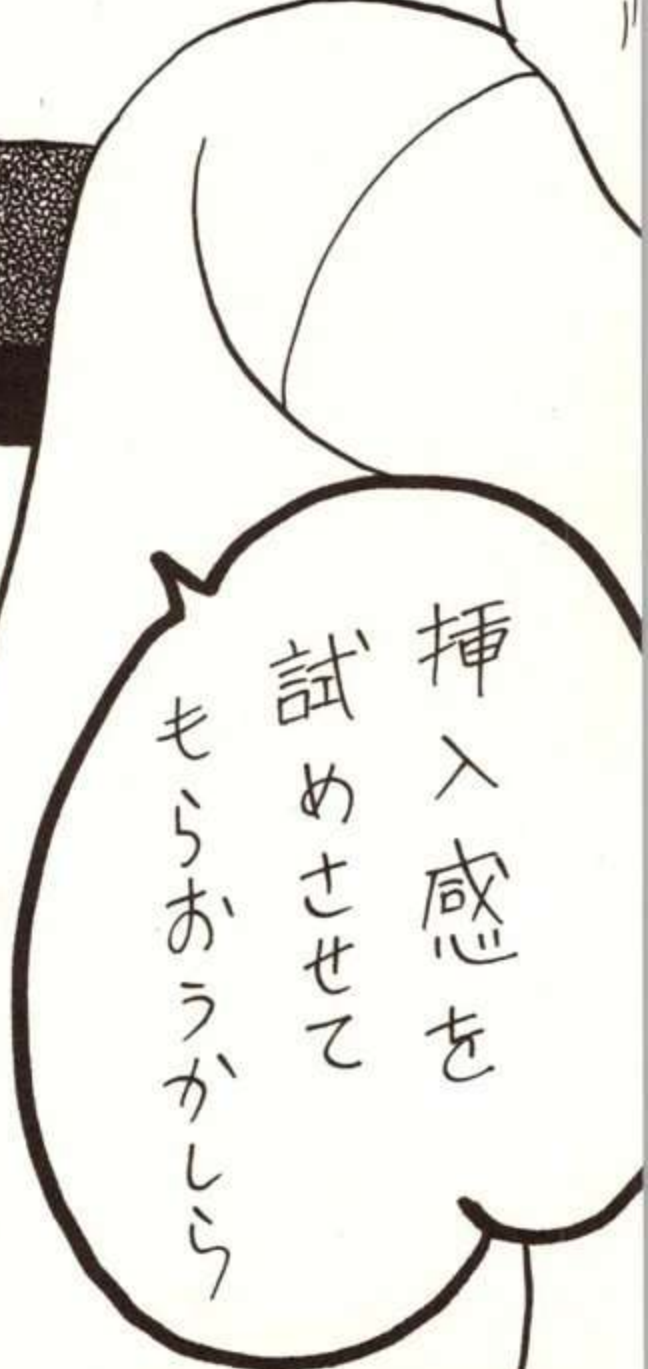 挿入感を
試めさせて
もらおうかしら